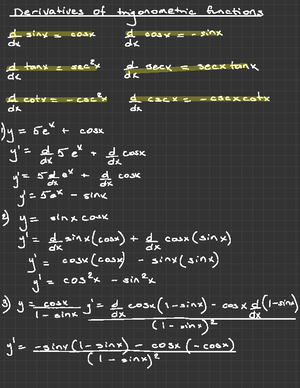 Derivatives of trigonometric functions
d/dx sinx = cosx d/dx cosx = -sinx
d/dx tanx = sec²x d/dx secx = secx tanx
d/dx cotx = -csc²x d/dx cscx = -cscx cotx
1) y = 5e^x + cosx
y' = d/dx 5e^x + d/dx cosx
y' = 5 d/dx e^x + d/dx cosx
y' = 5e^x - sinx
2) y = sinx cosx
y' = d/dx sinx (cosx) + d/dx cosx (sinx)
y' = cosx (cosx) - sinx (sinx)
y' = cos²x - sin²x
3) y = cosx / 1 - sinx y' = d/dx cosx (1-sinx) - cosx d/dx (1-sinx) / (1-sinx)²
y' = -sinx (1-sinx) - cosx (-cosx) / (1-sinx)²